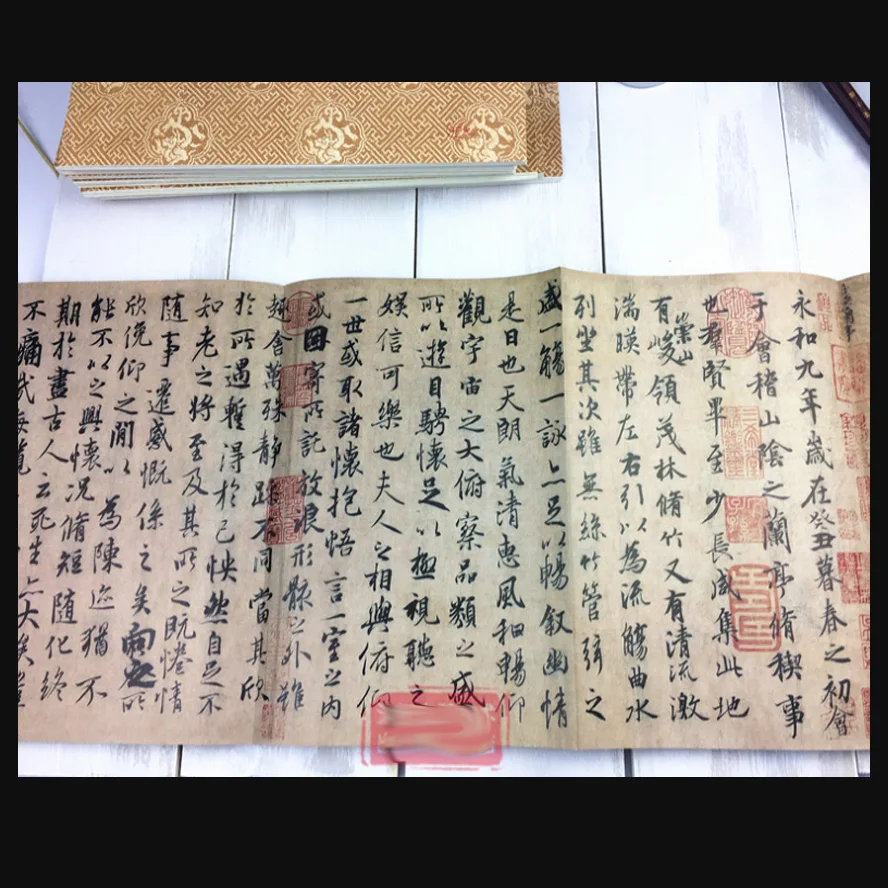 永和九年歲在癸丑暮春之初會
于會稽山陰之蘭亭脩稧事
也羣賢畢至少長咸集此地
有崇山峻領茂林脩竹又有清流激
湍暎帶左右引以為流觴曲水
列坐其次雖無絲竹管弦之
盛一觴一詠亦足以暢敘幽情
是日也天朗氣清惠風和暢仰
觀宇宙之大俯察品類之盛
所以遊目騁懷足以極視聽之
娛信可樂也夫人之相與俯仰
一世或取諸懷抱悟言一室之內
或因寄所託放浪形骸之外雖
趣舍萬殊靜躁不同當其欣
於所遇暫得於己怏然自足不
知老之將至及其所之既惓情
隨事遷感慨係之矣向之所
欣俛仰之間以為陳迹猶不
能不以之興懷況脩短隨化終
期於盡古人云死生亦大矣豈
不痛哉每覽